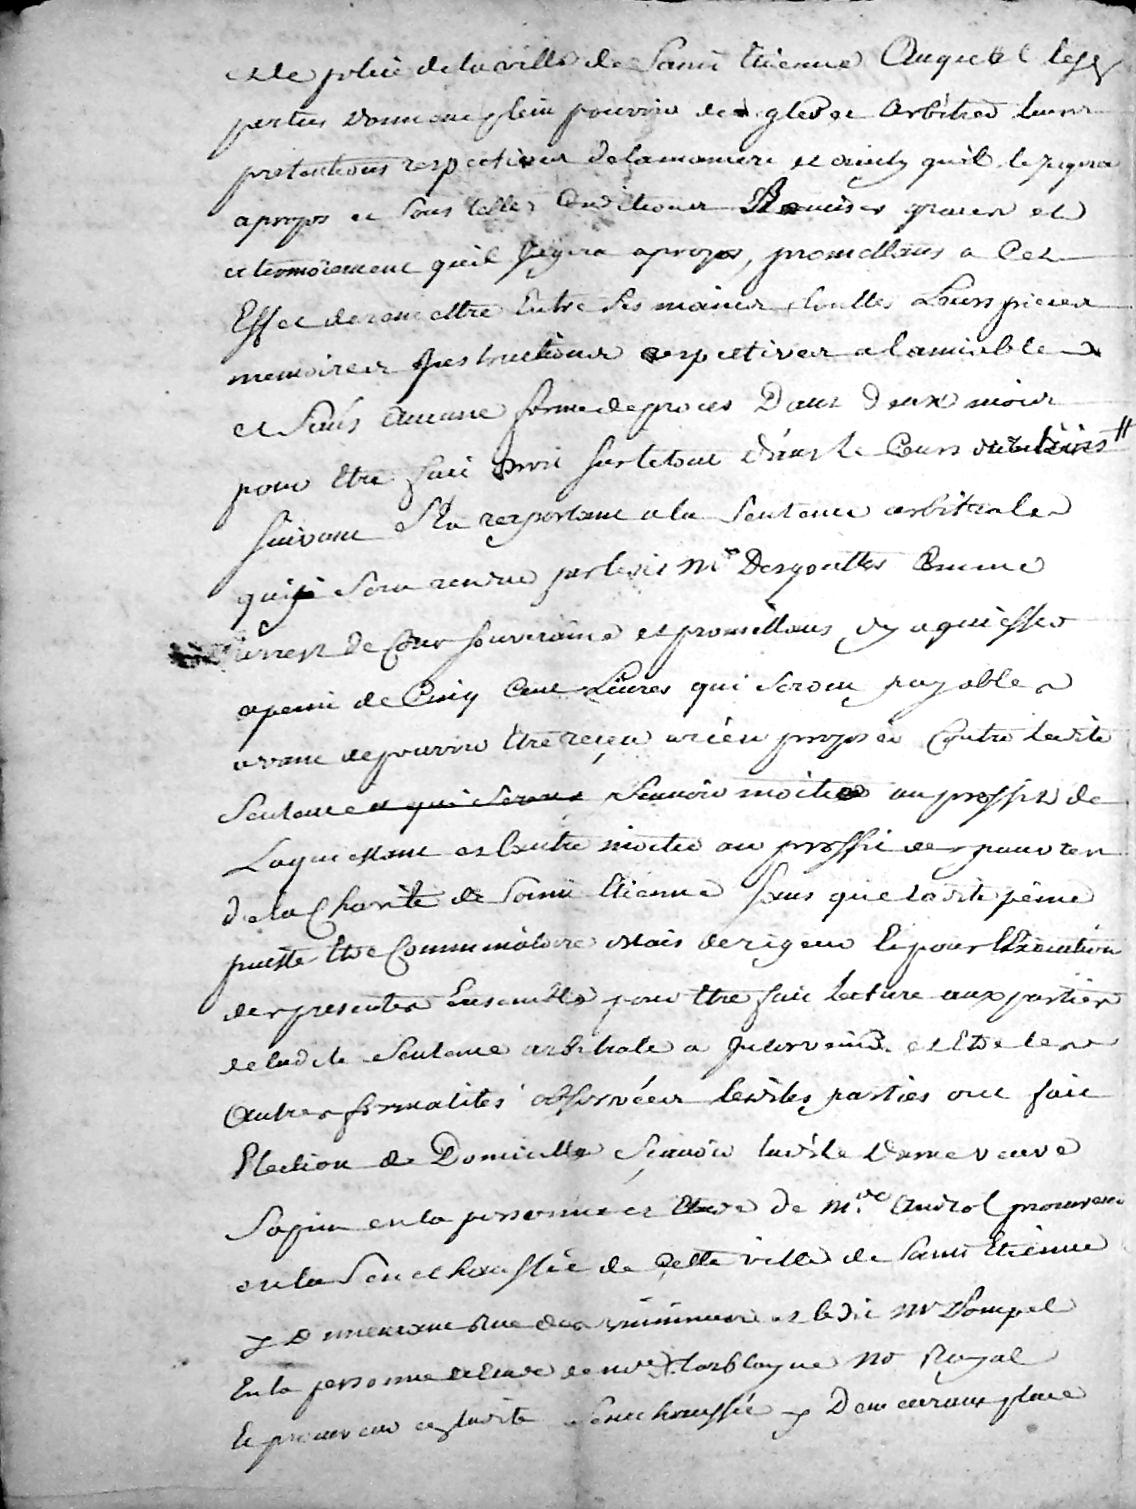 et de police de la ville de Saint Etienne Auquel les
parties donnent plein pouvoir de regler et arbitrer leurs
pretentions respectives de la maniere et ainsy qu'il le jugera
apropos et sous telles Conditions Remises graces et
attermoiement qu'il jugera apropos, promettans a Cet
Effet de remettre Entre ses mains touttes Leurs pieces
memoires Instructions respectives a lamiable
et sans aucune forme de proces Dans deux mois
pour Etre fait droit sur le tout dans le Cours
suivant S'en rapportant a la Sentence arbitrale
qui sera rendue par ledit Mr Desgouttes Comme
arrest de Cour souveraine et promettans dy aquiesser
apeine de Cinq Cent Livres qui seront payables
avant de pouvoir Etre reçeu a rien proposer Contre ladite
Sentence et qui seront Scavoir moitie au proffit de
Laquiessant et lautre moitie au proffit des pauvres
de la Charité de Saint Etienne sans que ladite peine
puisse Etre Comminatoire Mais de rigeur Et pour l'Execution
des presentes Ensemble pour Etre fait lecture aux parties
de ladite Sentence arbitrale a Intervenir et Etre les
Autres formalités observées lesdites parties ont fait
Election de Domicille Scavoir ladite Dame veuve
Sapin en la personne et Etude de Me Androl procureur
en la Senechaussée de Cette ville de Saint Etienne
y Demeurant Rue des minimes et ledit Mr Dompel
En la personne et Etude de Me no Royal
Et procureur en ladite Senechaussée y Demeurant place